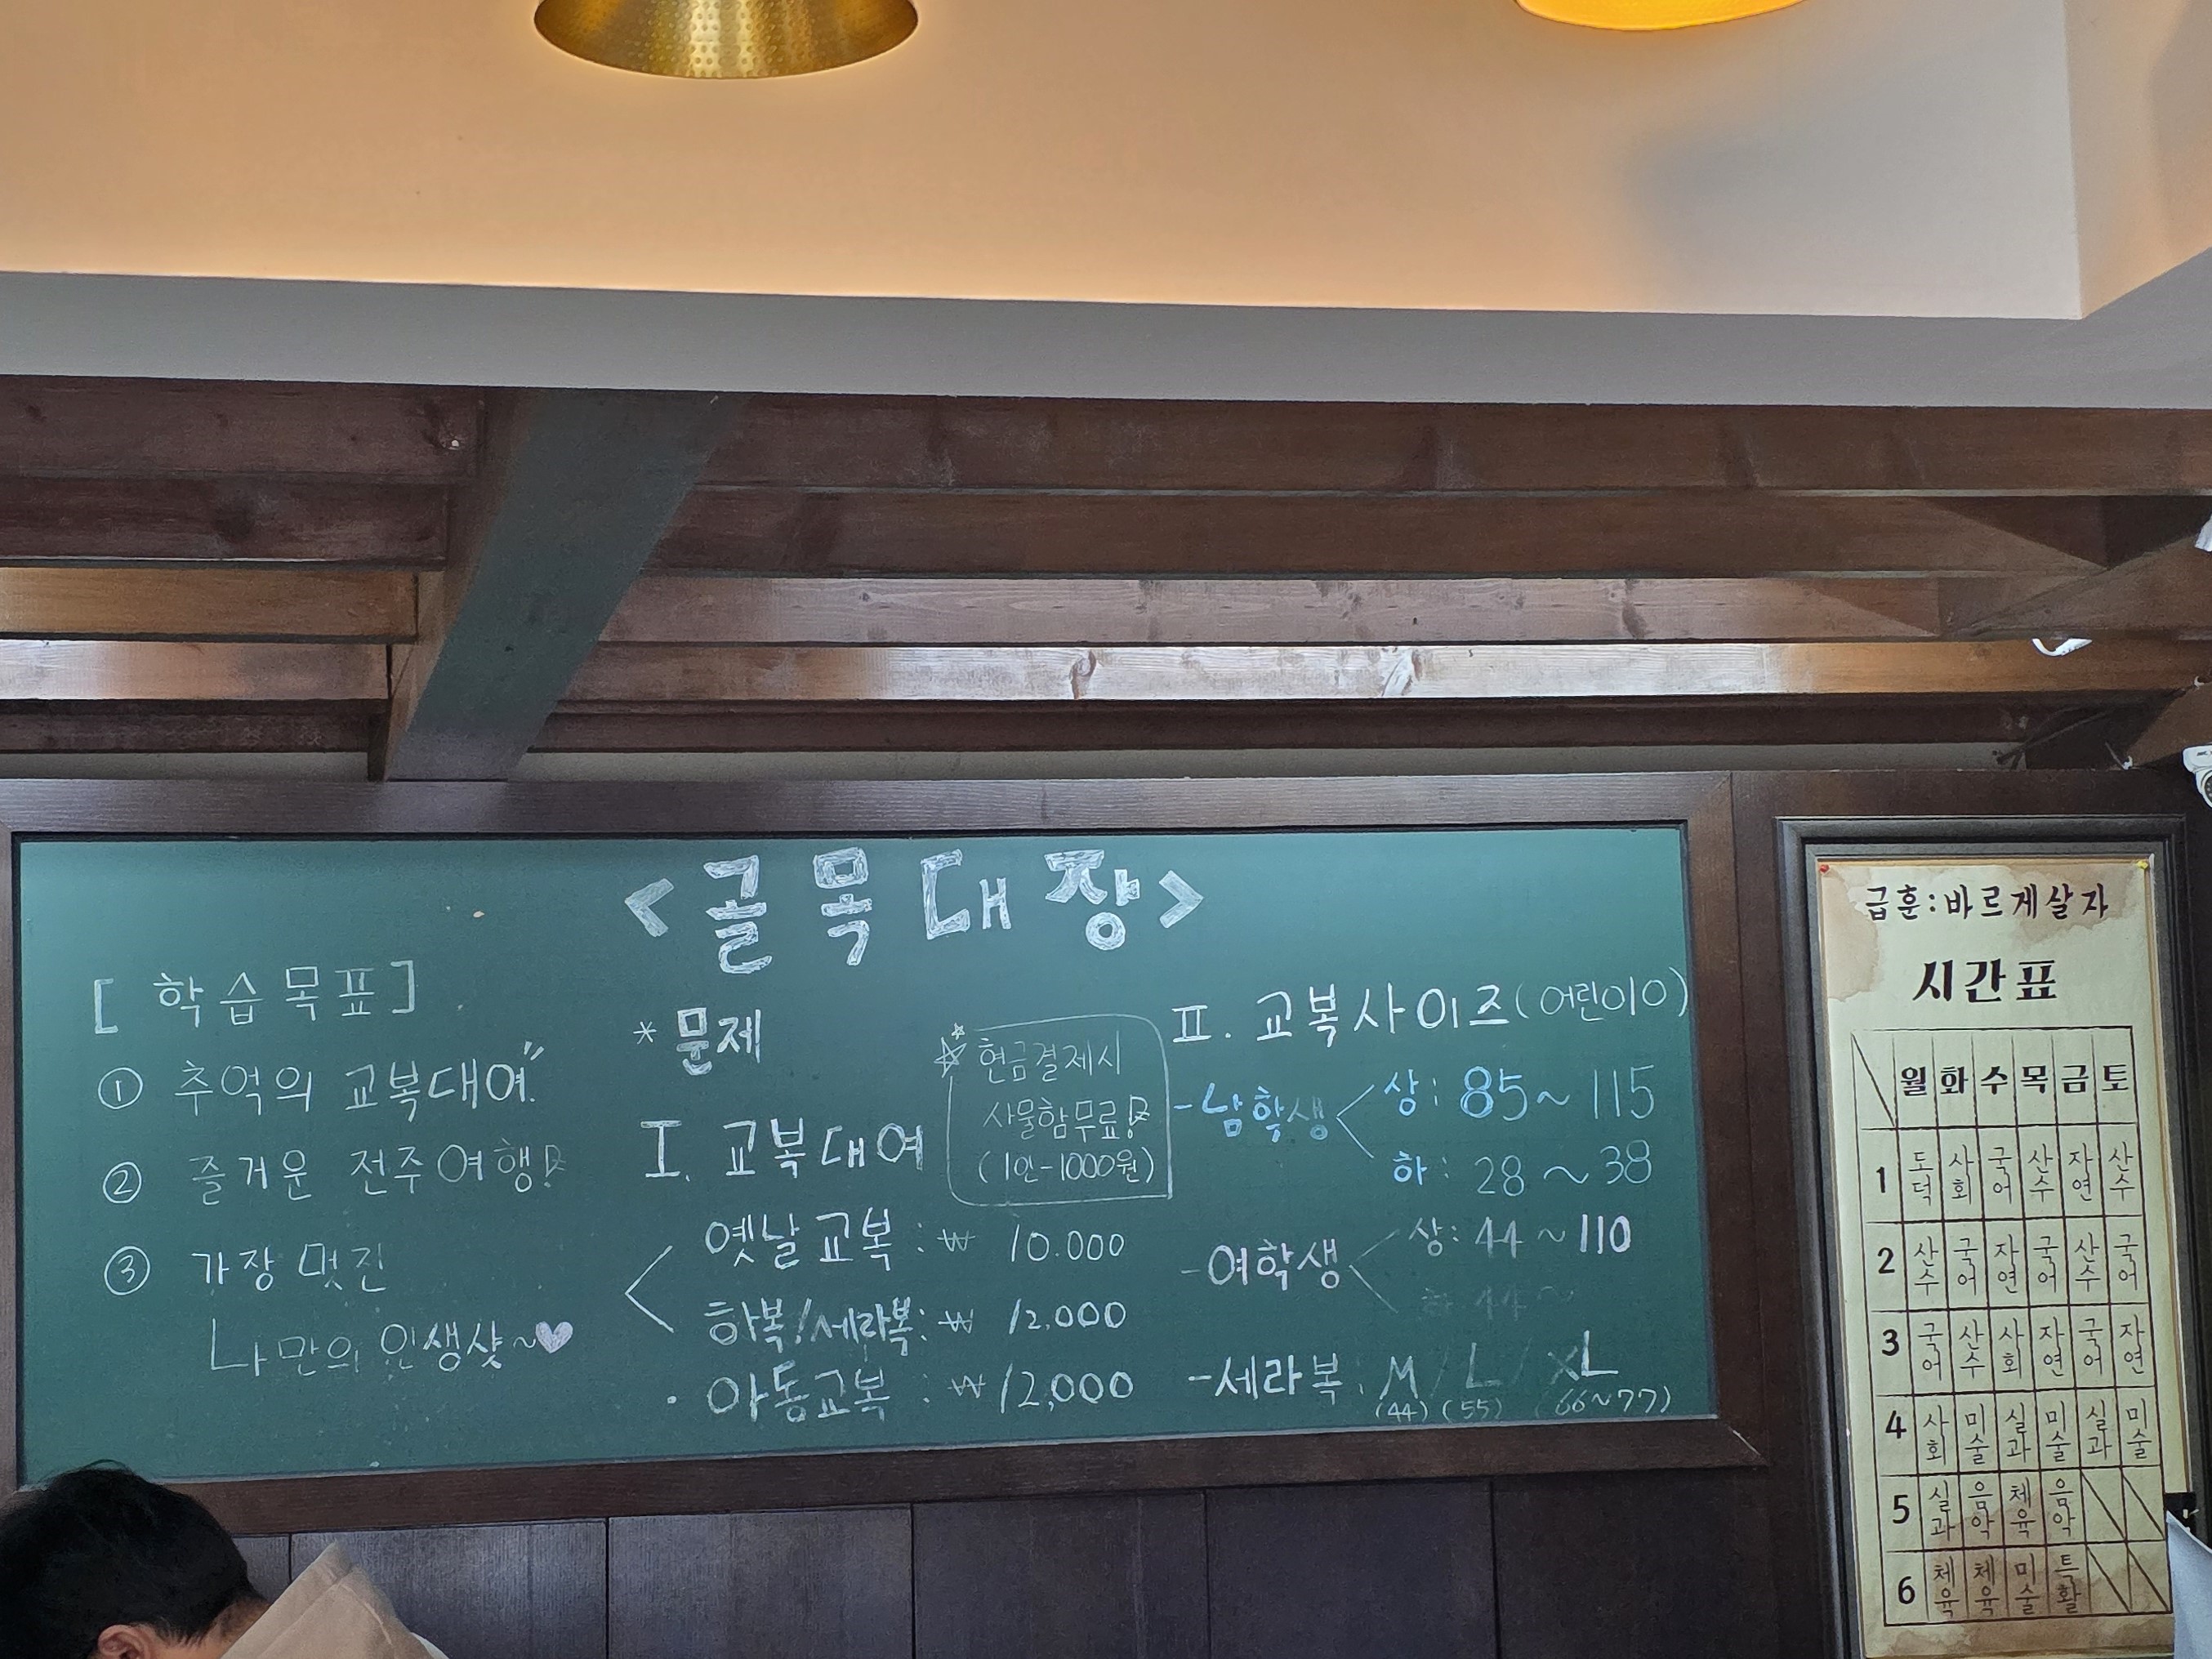 <골목대장>
[학습목표]
① 추억의 교복대여"
② 즐거운 전주여행!
③ 가장 멋진
나만의 인생샷~♥
* 문제
I. 교복대여
현금결제시
사물함무료!
(1인-1000원)
옛날교복 : ₩ 10.000
하복/세라복: ₩ 12.000
· 아동교복 : ₩12,000
II. 교복사이즈(어린이O)
-남학생 < 상: 85~115
하: 28~38
-여학생 < 상: 44~110
하 44~
-세라복: M / L / XL
(44) (55) (66~77)
급훈:바르게살자
시간표
월 화 수 목 금 토
1 도덕 사회 국어 산수 자연 산수
2 산수 국어 자연 국어 산수 국어
3 국어 산수 사회 자연 국어 자연
4 사회 미술 실과 미술 실과 미술
5 실과 음악 체육 음악
6 체육 체육 미술 특활